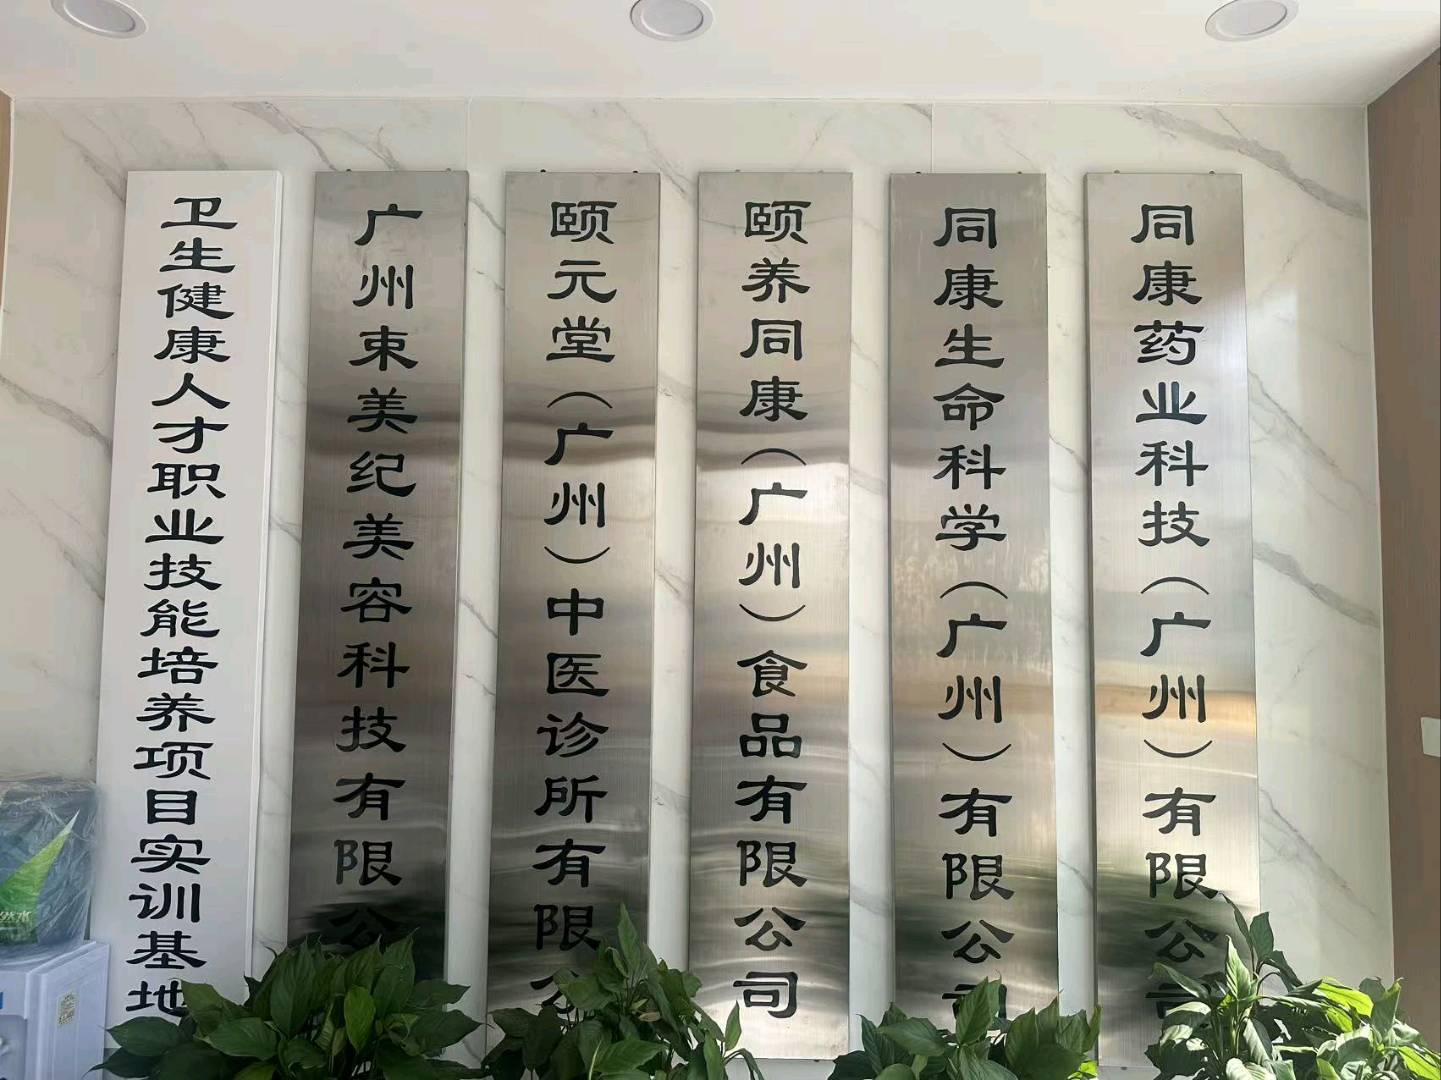 卫生健康人才职业技能培养项目实训基地
广州束美纪美容科技有限公
颐元堂（广州）中医诊所有限公
颐养同康（广州）食品有限公司
同康生命科学（广州）有限公司
同康药业科技（广州）有限公司
然水